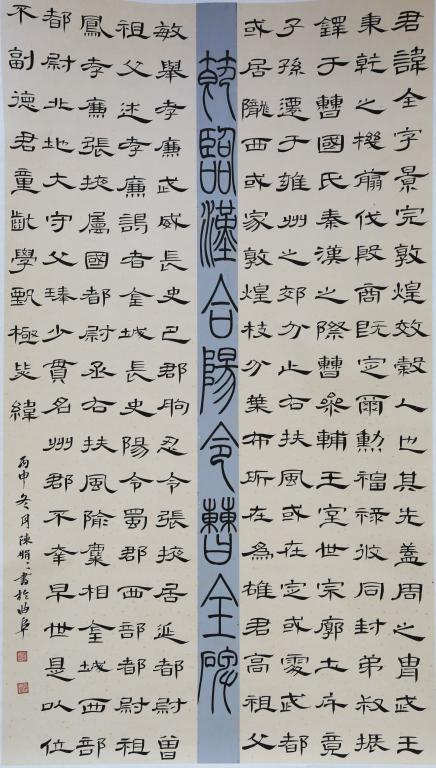 君諱全字景完敦煌效穀人也其先蓋周之冑武王
秉乾之機翦伐殷商既定爾勳福祿攸同封弟叔振
鐸于曹國氏秦漢之際曹參輔王室世宗廓土斥竟
子孫遷于雍州之郊分止右扶風或在定或處武都
或居隴西或家敦煌枝分葉布所在為雄君高祖父
節臨漢合陽令曹全碑
敏舉孝廉武威長史巴郡朐忍令張掖居延都尉曾
祖父述孝廉謁者金城長史陽令蜀郡西部都尉祖
鳳孝廉張掖屬國都尉丞右扶風隃麋相金城西部
都尉北地大守父琫少貫名州郡不幸早世是以位
不副德君童齔學甄極毖緯
丙申冬月陳書於曲阜